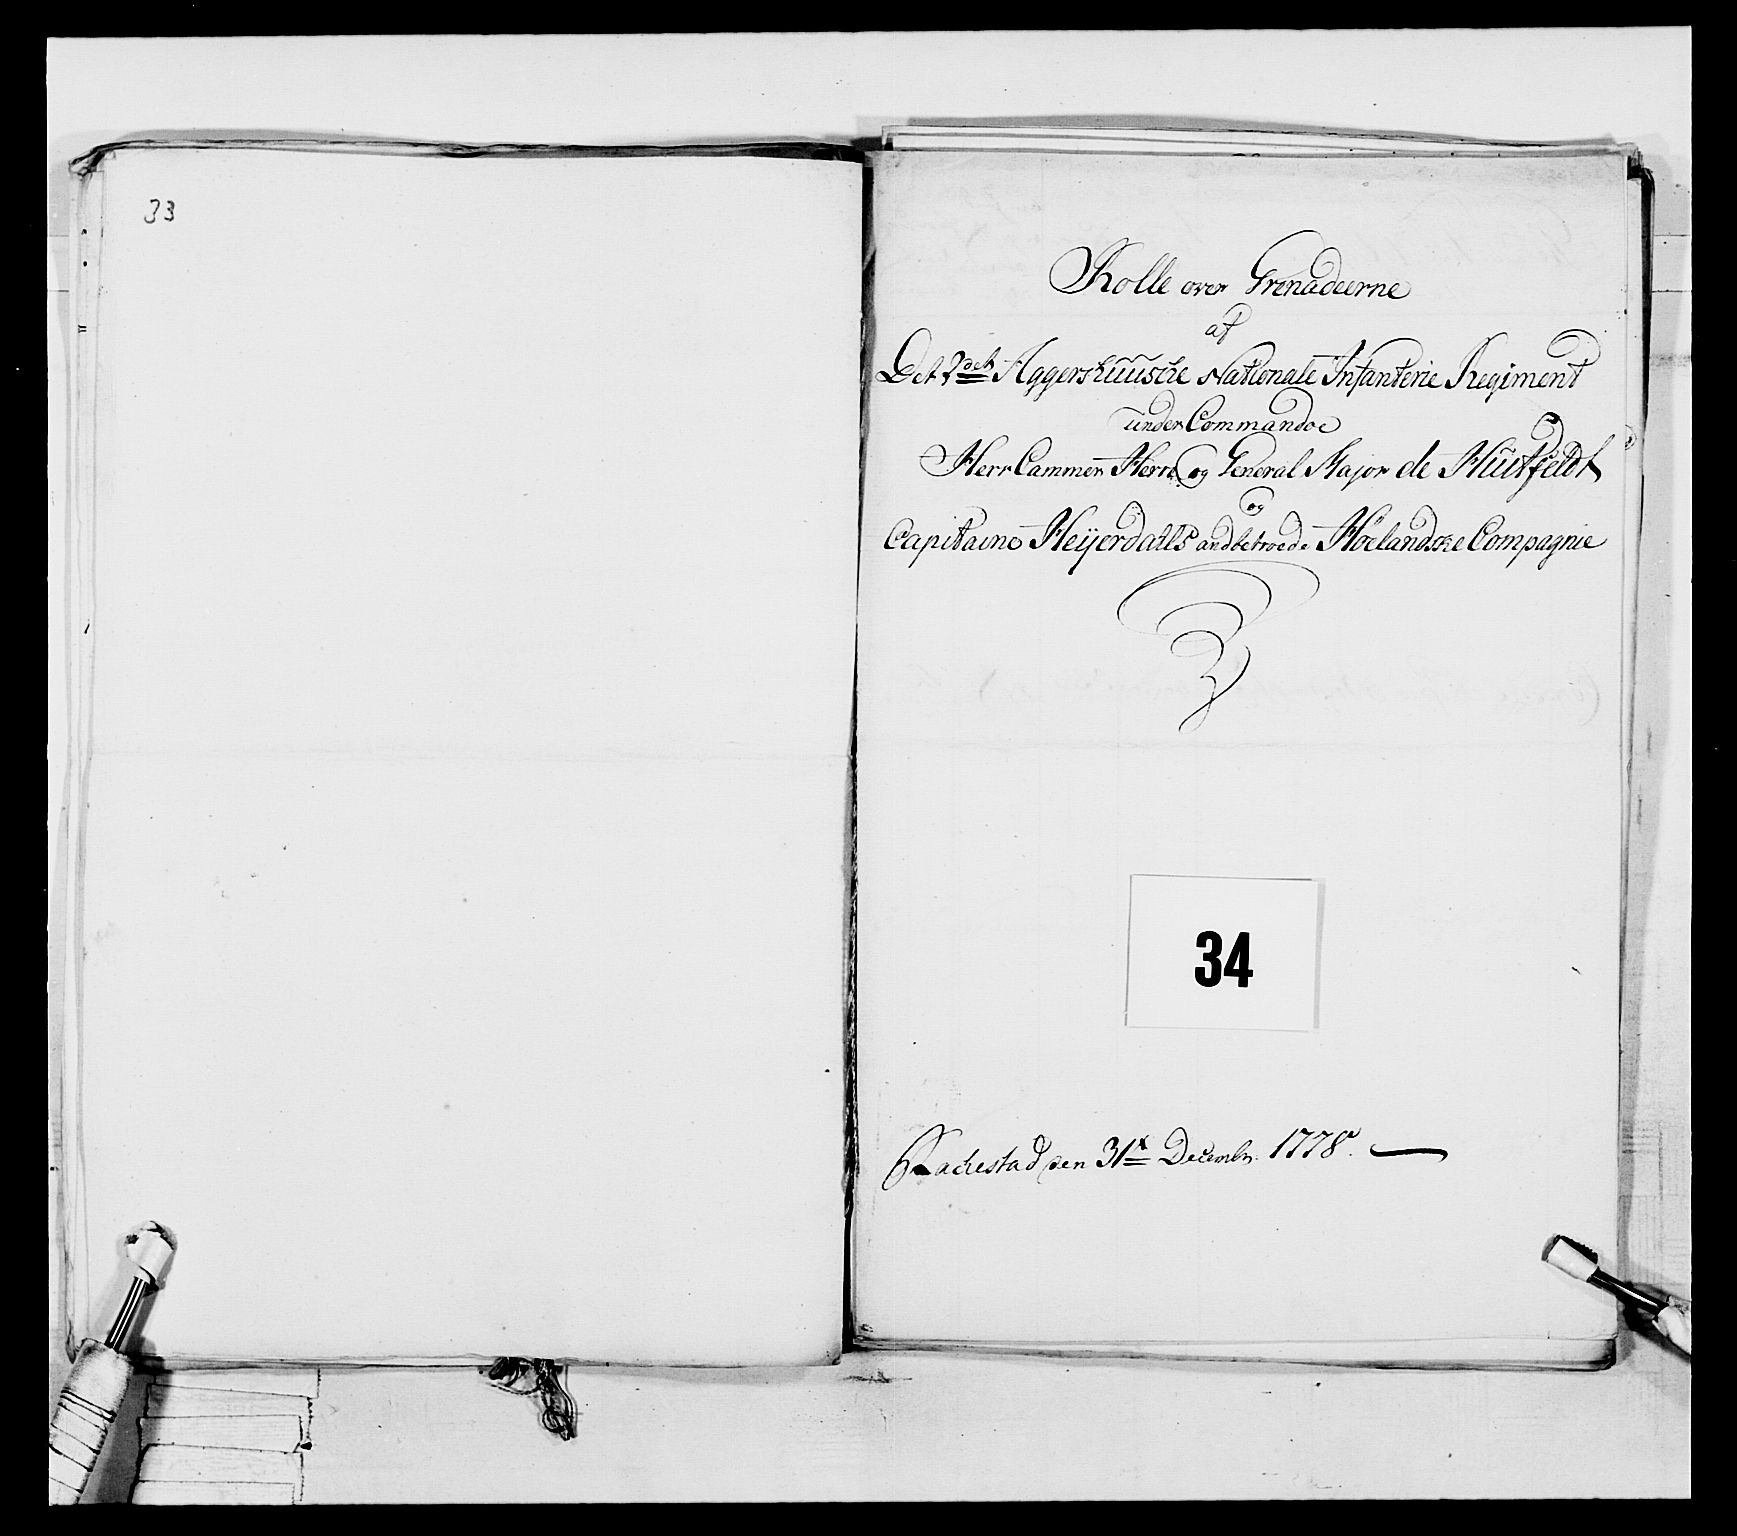 33
Rolle over Grenadeerne
af
Det 2det Aggershuusche Nationale Infanterie Regiment
under Commandoe
Herr Cammer Herre og General Major de Hüitfeldt
og
Capitaine Heijerdahls andbetroede Höelandske Compagnie
34
Rachestad den 31te Decembr. 1778.